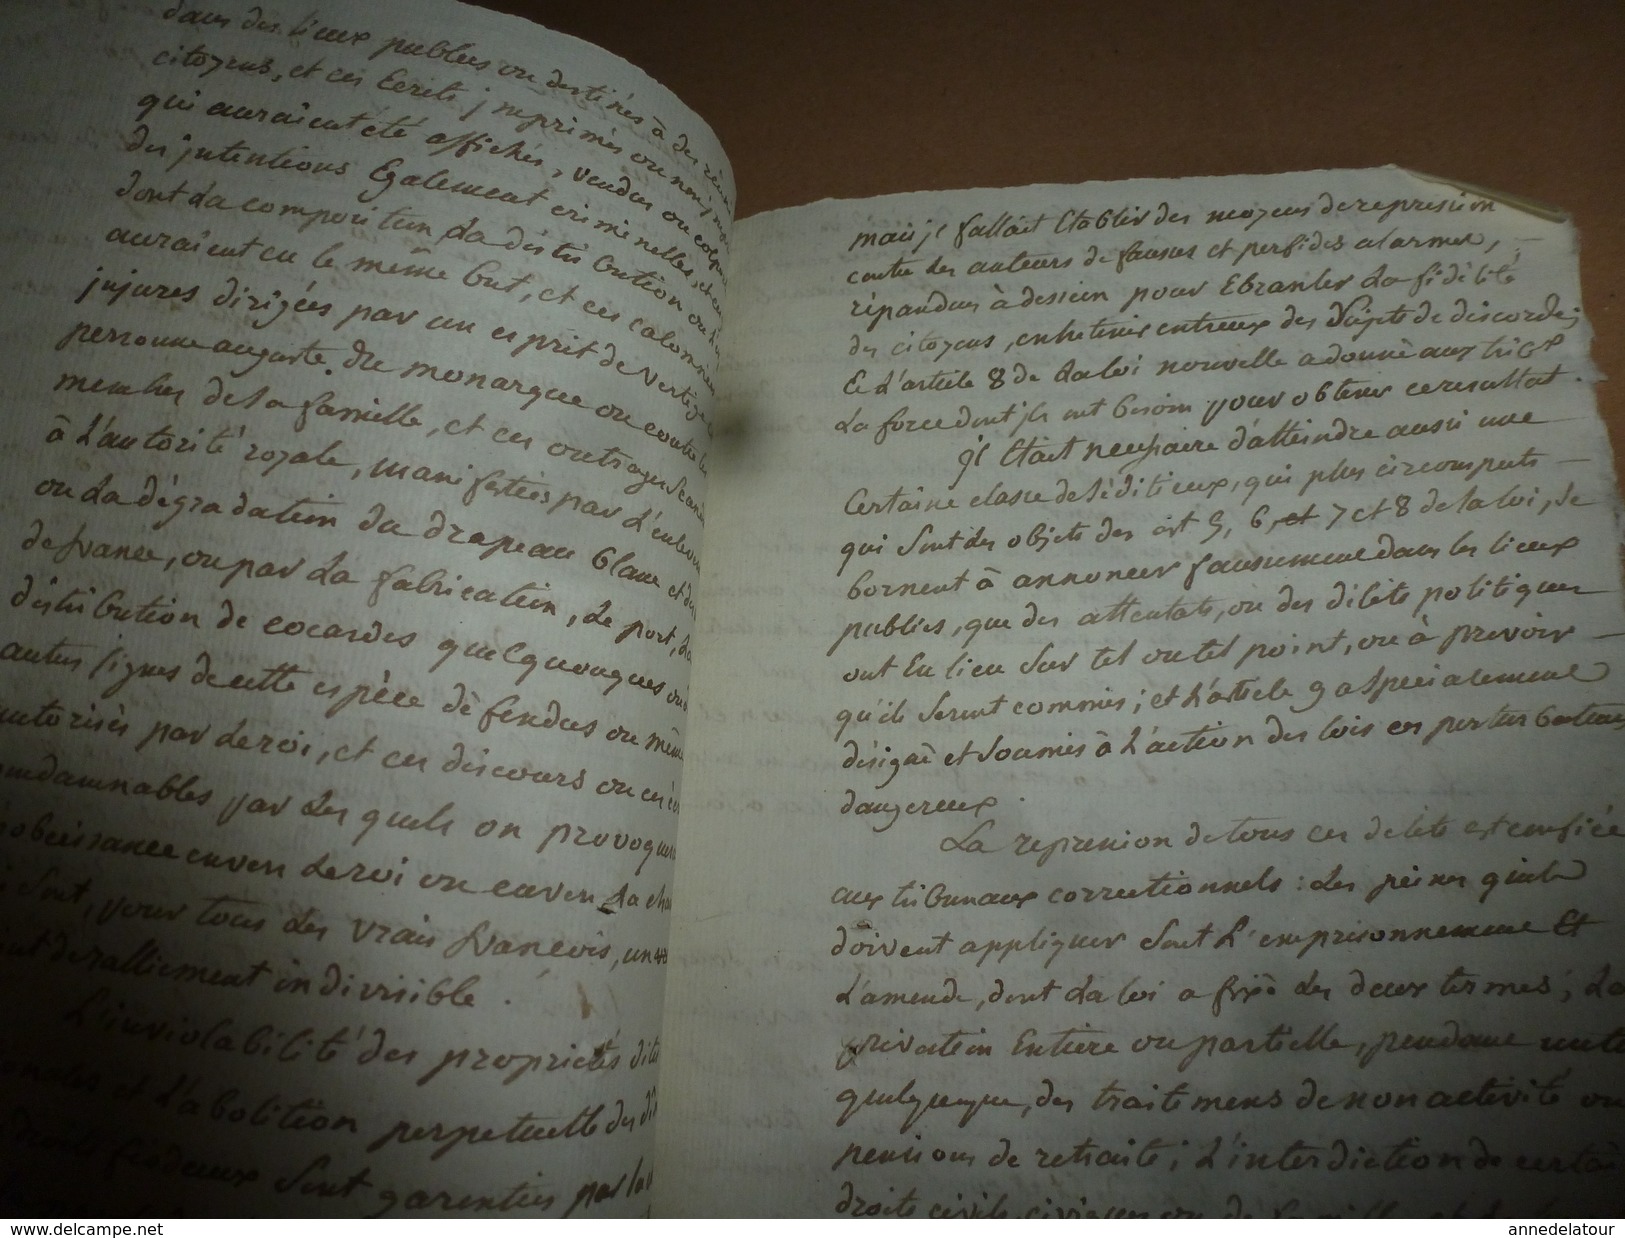 dans des lieux publics ou destinés à des réun
citoyens, et ces Ecrits jmprimés ou non jm
qui auraient été affichés, vendus ou colpor
des jntentions Egalement criminelles, et
dont la composition la distribution ou
auraient eu le même but, et ces calomnies
jnjures dirigées par un esprit de vertige
personne auguste du monarque ou contre les
membres de la famille, et ces outrages
à l'autorité royale, manifestées par l'enlevem
ou la dégradation du drapeau blanc et des
de france, ou par la fabrication, le port, la
distribution de cocardes quelquonques ou d
autres signes de cette espèce défendus ou même
autorisés par le roi, et ces discours ou ces éc
ondamnables par les quels on provoque
obeissance envers le roi ou envers la cha
i sont, pour tous les vrais francois, un
int de ralliement indivisible.
L'inviolabilité des propriétés dites
onales et l'abolition perpetuelle des dî
droits feodeaux sont garenties par la
mais jl fallait Etablir des moyens de represion
contre les auteurs de fausses et perfides alarmes,
répandues à dessein pour Ebranler la fidélité
des citoyens, entretenir entreux des Sujets de discorde;
E L'article 8 de la loi nouvelle a donné aux tribx
la force dont jls ont besoin pour obtenir ce resultat.
jl Etait necessaire d'atteindre aussi une
Certaine classe de Séditieux, qui plus circonspects
qui Sont les objets des art 5, 6, et 7 et 8 de la loi, se
bornent à annoncer faussement dans les lieux
publics, que des attentats, ou des délits politiques
ont Eu lieu Sur tel ou tel point, ou à prevoir
qu'ils Seront commis; et l'article 9 a Specialement
désigné et Soumis à l'action des lois ces perturbateurs
dangereux.
La represion de tous ces delits est confiée
aux tribunaux correctionnels: les peines quils
doivent appliquer Sont l'emprisonnement Et
L'amende, dont la loi a fixé les deux termes; la
privation Entiere ou partielle, pendant un te
quelquonque, des traitemens de non activité ou
pensions de retraite; l'interdiction de certai
droits civils, civiques ou de famille et
delcampe.net
annedelatour